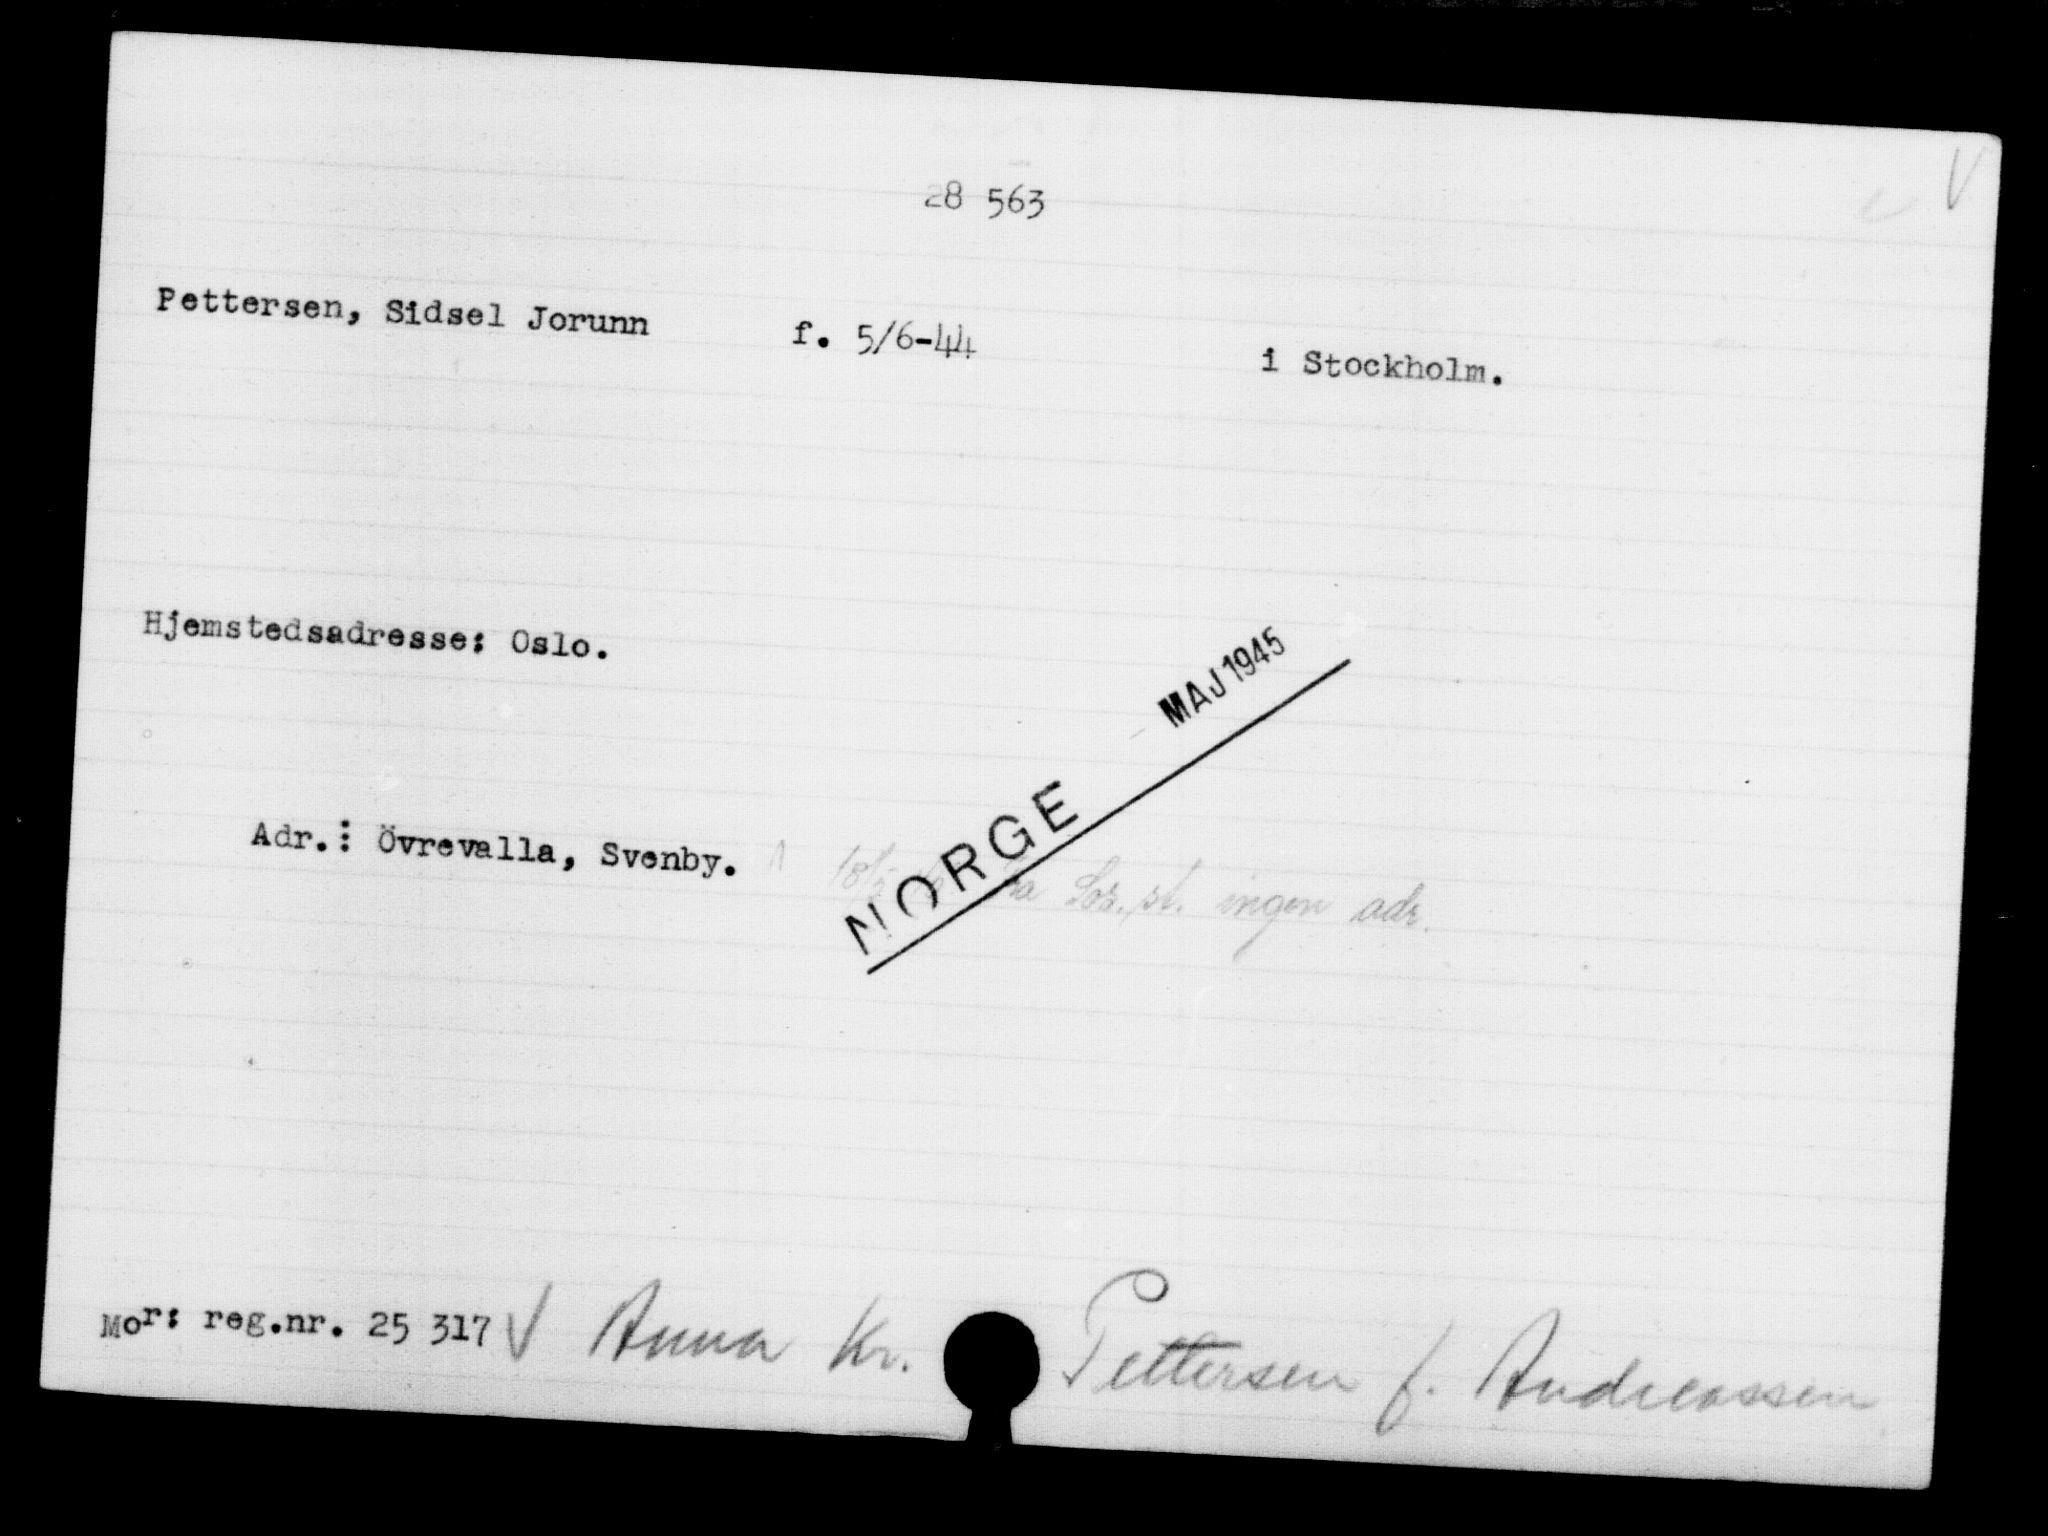 28 563
V
Pettersen, Sidsel Jorunn f. 5/6-44 i Stockholm.
Hjemstedsadresse: Oslo.
MAJ 1945
NORGE
Adr.: Övrevalla, Svenby. 18/5 ingen adr.
Mor: reg.nr. 25 317 V Anna Kr. Pettersen f. Andreassen